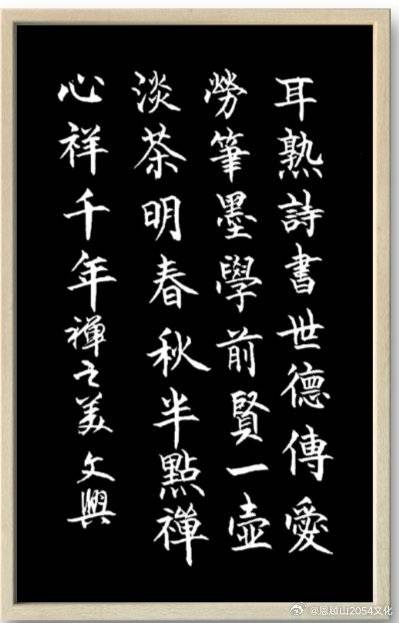 耳熟詩書世德傳愛
勞筆墨學前賢一壺
淡茶明春秋半點禪
心祥千年禪之美 文興
@恩越山2054文化